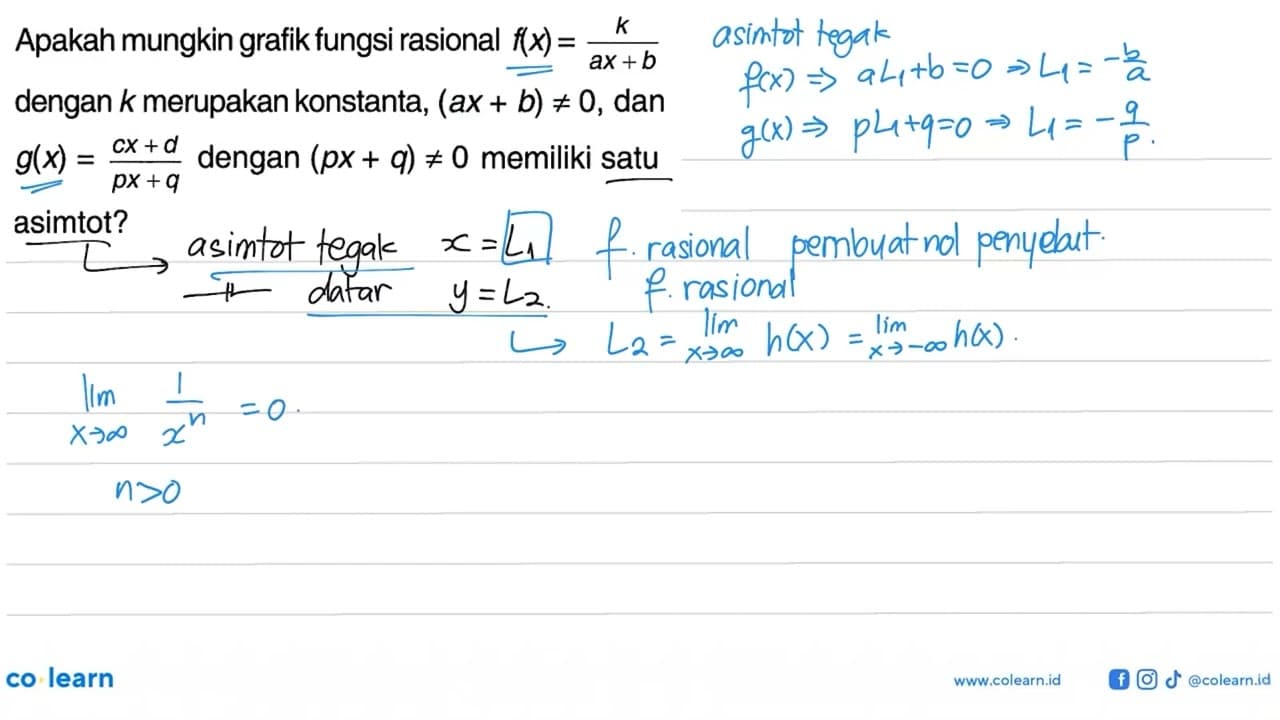 Apakah mungkin grafik fungsi rasional f(x) = k / (ax + b)
dengan k merupakan konstanta, (ax + b) ≠ 0, dan
g(x) = (cx + d) / (px + q) dengan (px + q) ≠ 0 memiliki satu
asimtot?
asimtot tegak
f(x) ⇒ aL₁+b=0 ⇒ L₁ = -b/a
g(x) ⇒ pL₁+q=0 ⇒ L₁ = -q/p.
asimtot tegak x = L₁ f. rasional pembuat nol penyebut.
—||— datar y = L₂. f. rasional
L₂ = lim x→∞ h(x) = lim x→-∞ h(x).
lim x→∞ 1/xⁿ = 0.
n>0
co learn
www.colearn.id @colearn.id